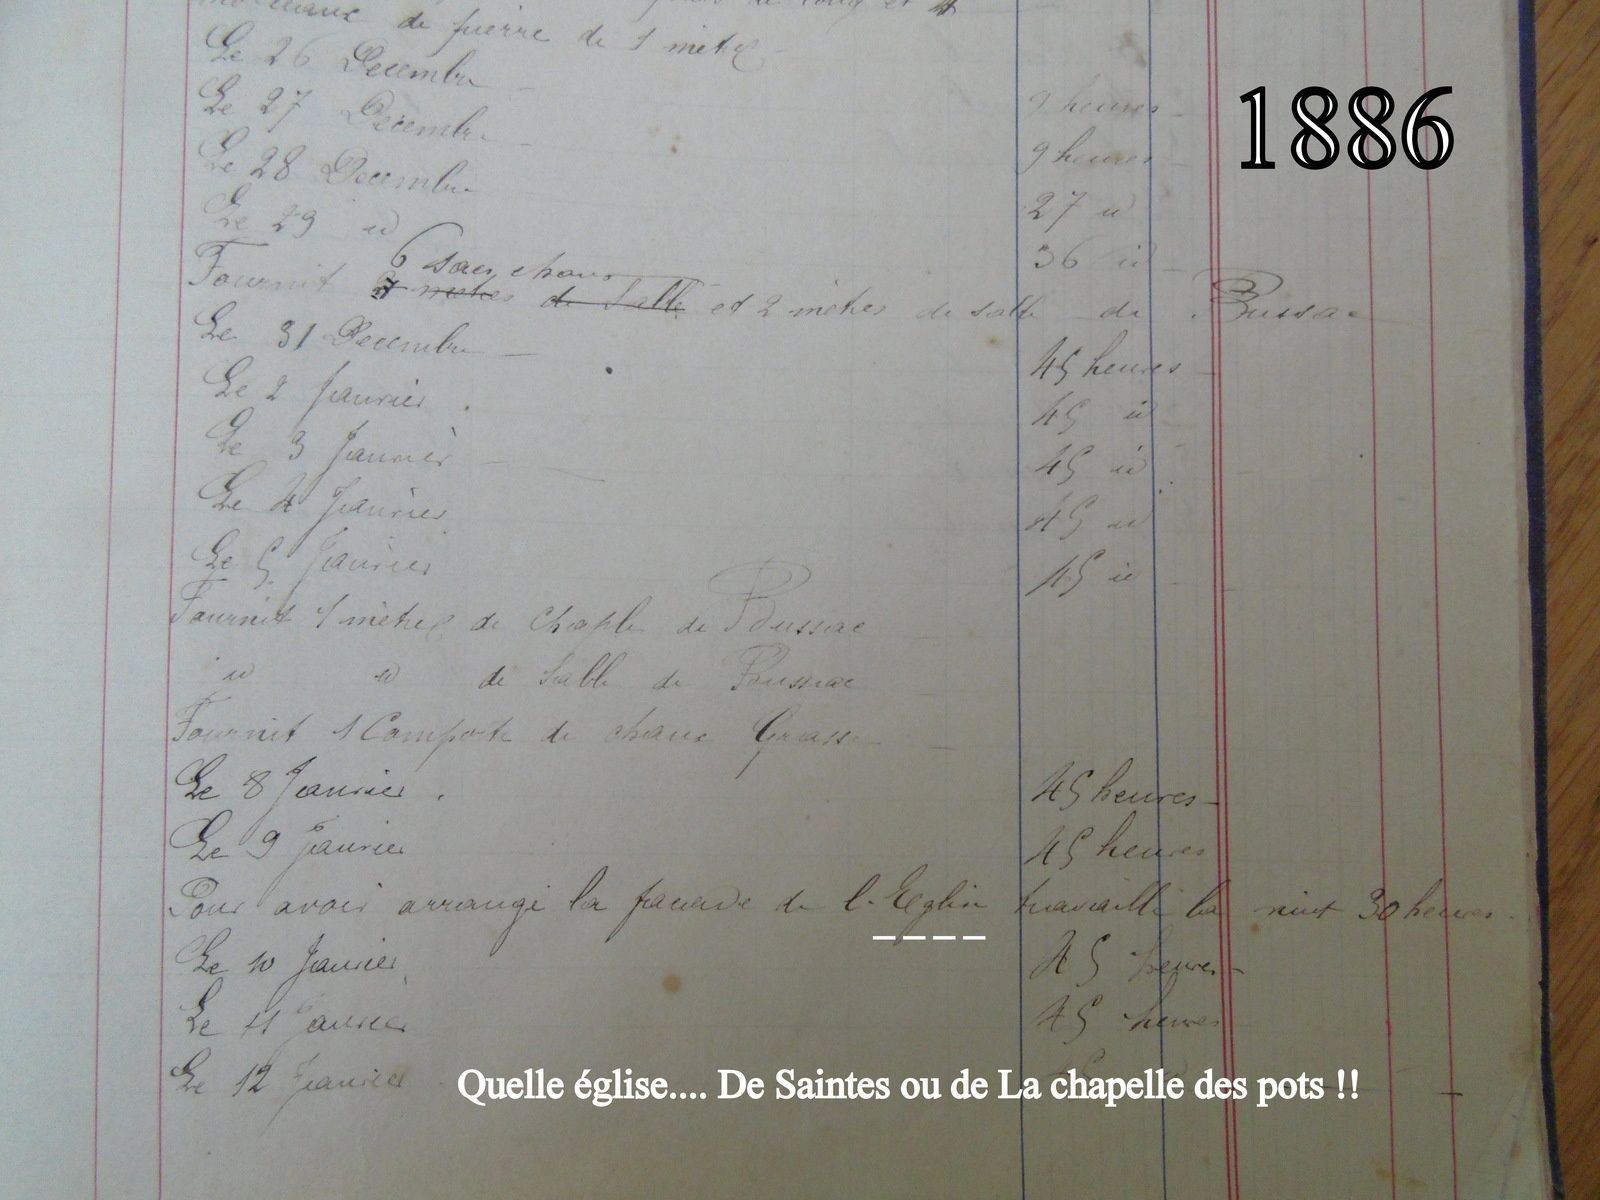 morceaux de pierre de 1 metre
Le 26 Decembre
1886
Le 27 Decembre 9 heures
Le 28 Decembre 9 heures
Le 29 id 27 id
36 id
6 sacs chaux
Fournit metres de Sable et 2 mètres de sable de Bussac
Le 31 Decembre 45 heures
Le 2 Janvier 45 id
Le 3 Janvier 45 id
Le 4 Janvier 45 id
Le 5 Janvier 45 id
Fournit 1 mètre de Chaple de Bussac
id id de Sable de Bussac
Fournit 1 Comporte de chaux Grasse
Le 8 Janvier 45 heures
Le 9 Janvier 45 heures
Pour avoir arrangé la façade de l'Eglise travaillé la nuit 30 heures
Le 10 Janvier 45 heures
Le 11 Janvier 45 heures
Le 12 Janvier 45 id
Quelle église.... De Saintes ou de La chapelle des pots !!